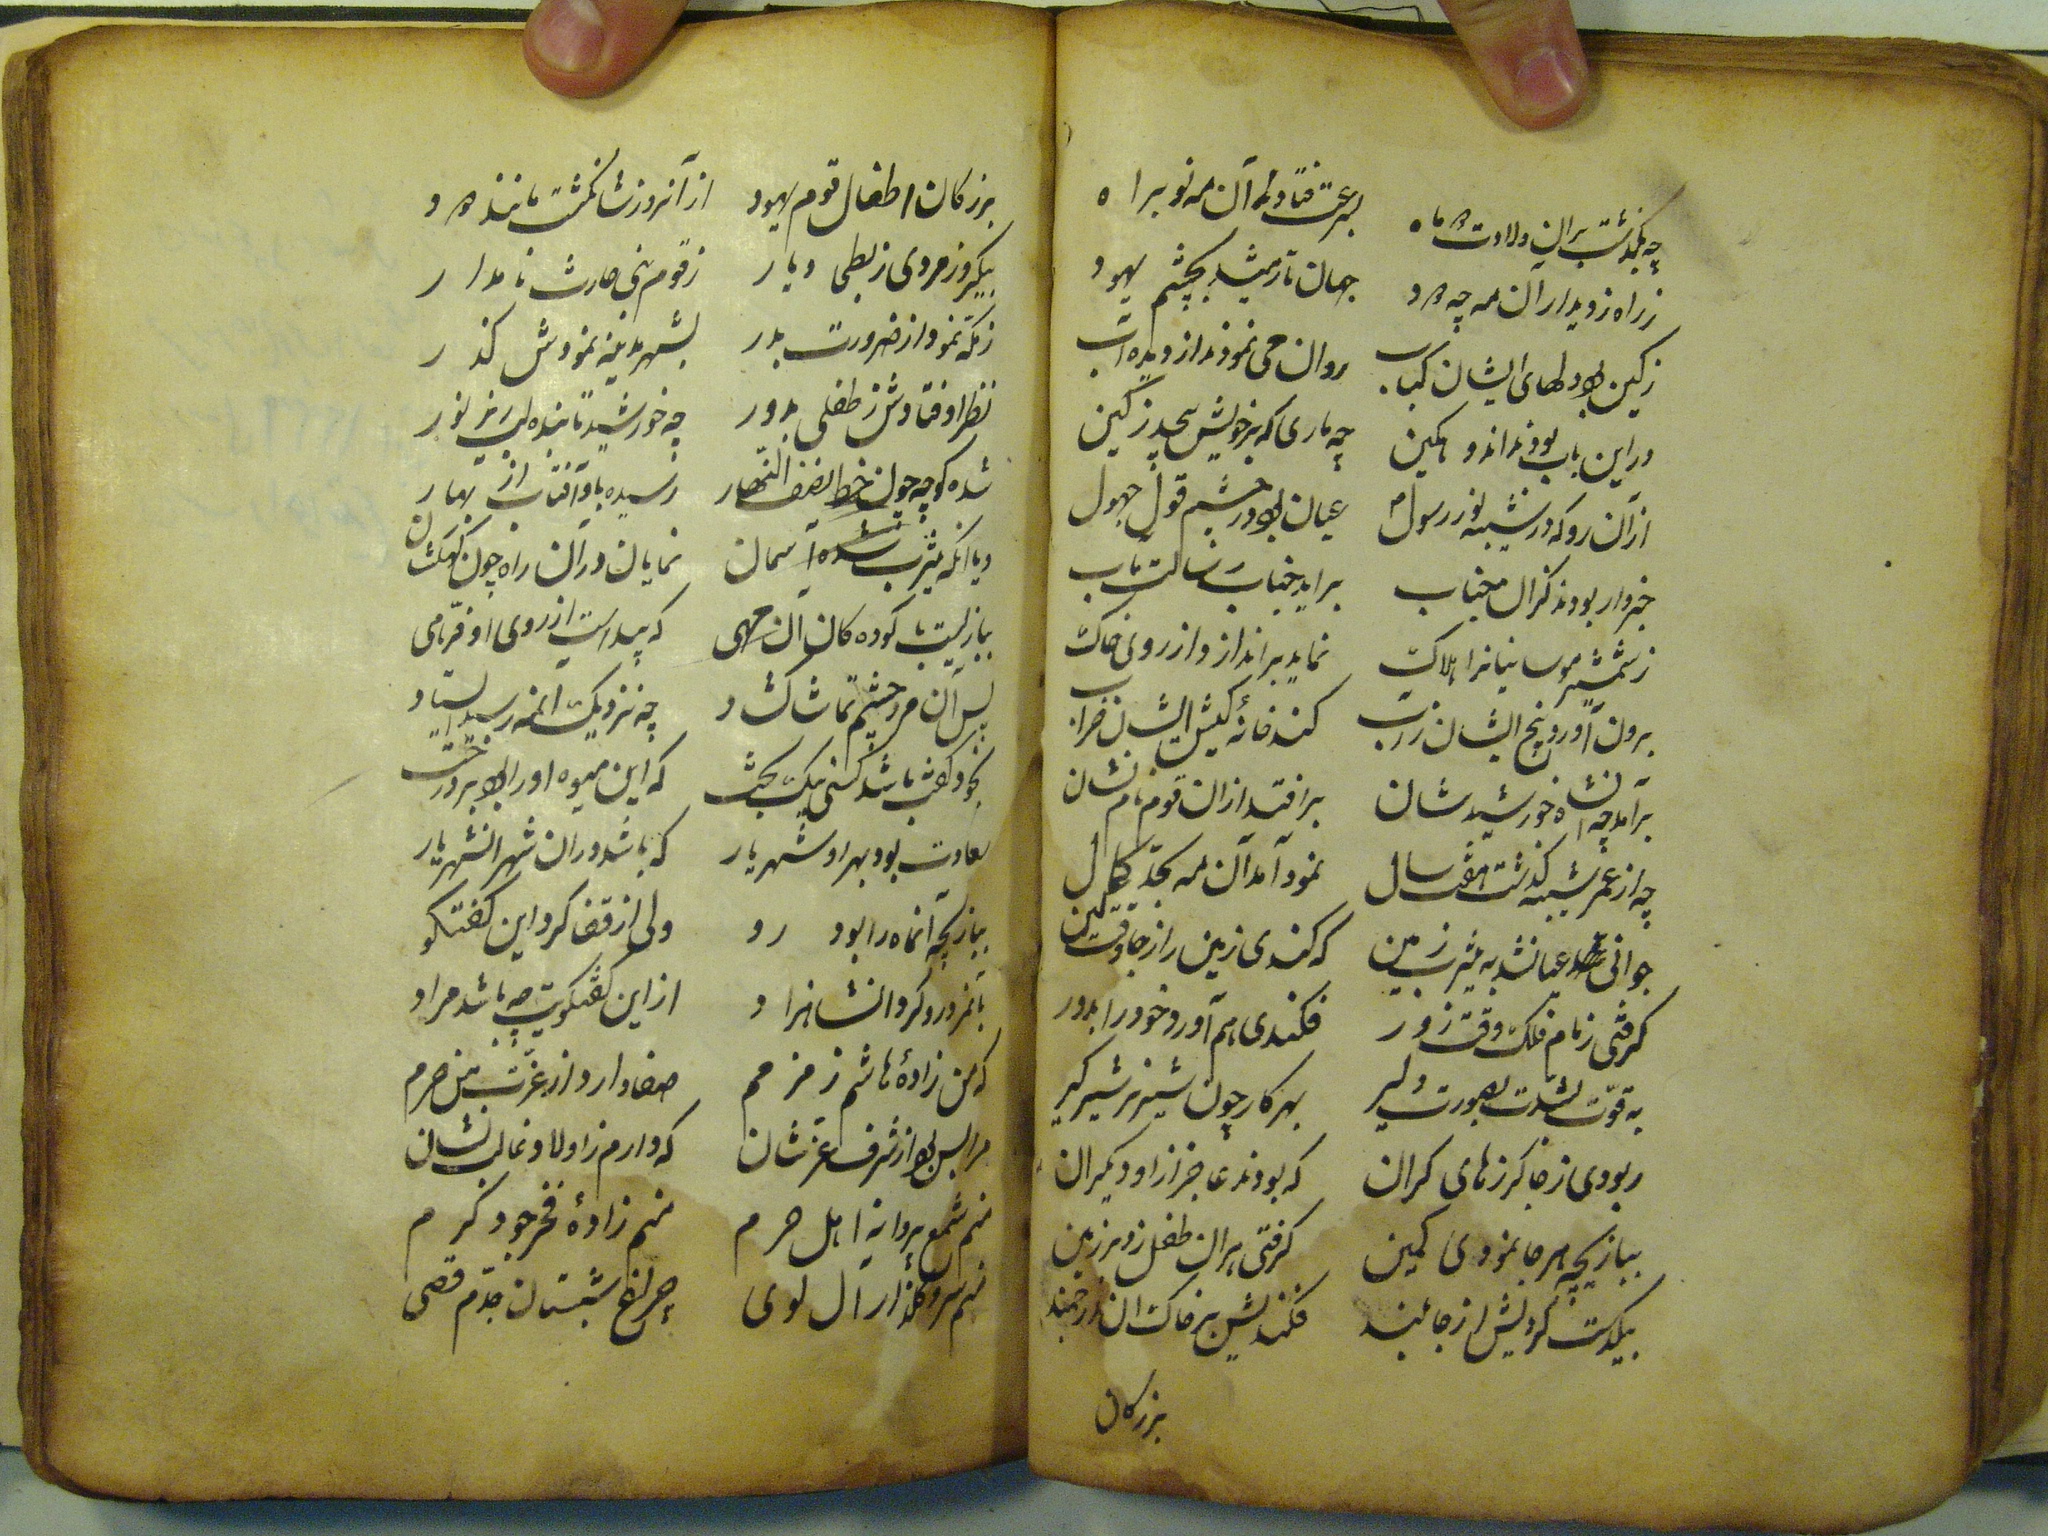 چه بگذشت بر این ولادت دو ماه بسرعت فتاد آن مه نو براه
ز راه ز دیدار آن مه چه دود جهان تار میشد بچشم یهود
ز کین بود دلهای ایشان کباب روان می نمودند از دیده آب
در این باب بودند اندوهکین چه ماری که بر خویش پیچد ز کین
از آن رو که در شیبه نور رسول عیان بود در چشم قول جهول
خبردار بودند کز آل مجناب بر اید جناب رسالت ماب
ز شمشیر موسائیانرا هلاک نماید بر اندازد از روی خاک
برون آورد بیخ ایشان ز آب کند خانهٔ کیش ایشان خراب
بر آمد چه آنشاه خورشید شان بر افتد از ان قوم نام نشان
چه از عمر شیبه گذشت هفت سال نمود آمد آن مه بحد کمال
جوانی عیانشد به یثرب زمین که کندی زمین را ز جا وقت کین
گرفتی زمام فلک وقت زور فکندی بهم آورد خود را بدور
به قوت بشدت بصورت دلیر بهر کار چون شیر نر شیرگیر
ربودی ز جا گرزهای گران که بودند عاجز از او دیگران
ببازیچه هر جا نمودی کمین گرفتی بران طفل زو بر زمین
بیکدست کردیش از جا بلند فکندیش بر خاک ان ارجمند
بزرکان
بزرکان اطفال قوم یهود از آنروز نشا نگشت مانند دود
بیکروز مردی ز بطی دیار ز قوم بنی حارث نامدار
ز مکه نمود از ضرورت بدر بشهر مدینه نمودش گذر
نظر اوفتادش ز طفلی بدور چه خورشید تابنده لبریز نور
شده کوچه چون خط نصف النهار رسیده باو آفتاب از بهار
و یا انکه یثرب شده آسمان نمایان در آن راه چون کهکشان
ببازیست با کوده کان آن مهی که پیداست از روی او فرهمی
پس آن مرد چشم تماشا کشاد چه نزدیک آنمه رسید ایستاد
بخود گفت باشد کسی نیک بخت که این میوه اورا بود بر درخت
سعادت بود بهر او شهریار که باشد در ان شهر انشهریار
ببازیچه آنماه را بود رو ولی از قضا کرد این گفتگو
بآنمرد رو کرد انشاهزاد از این گفتگویت چه باشد مراد
که من زادهٔ هاشم زمزمم صفا دارد از عزت من حرم
مرا بس بود از شرف عز شان که دارم ز اولاد غالب نشان
منم شمع پروانهٔ اهل حرم منم زادهٔ فخر جود کرم
منم سرو گلزار آل لوی چراغ شبستان جدم قصی